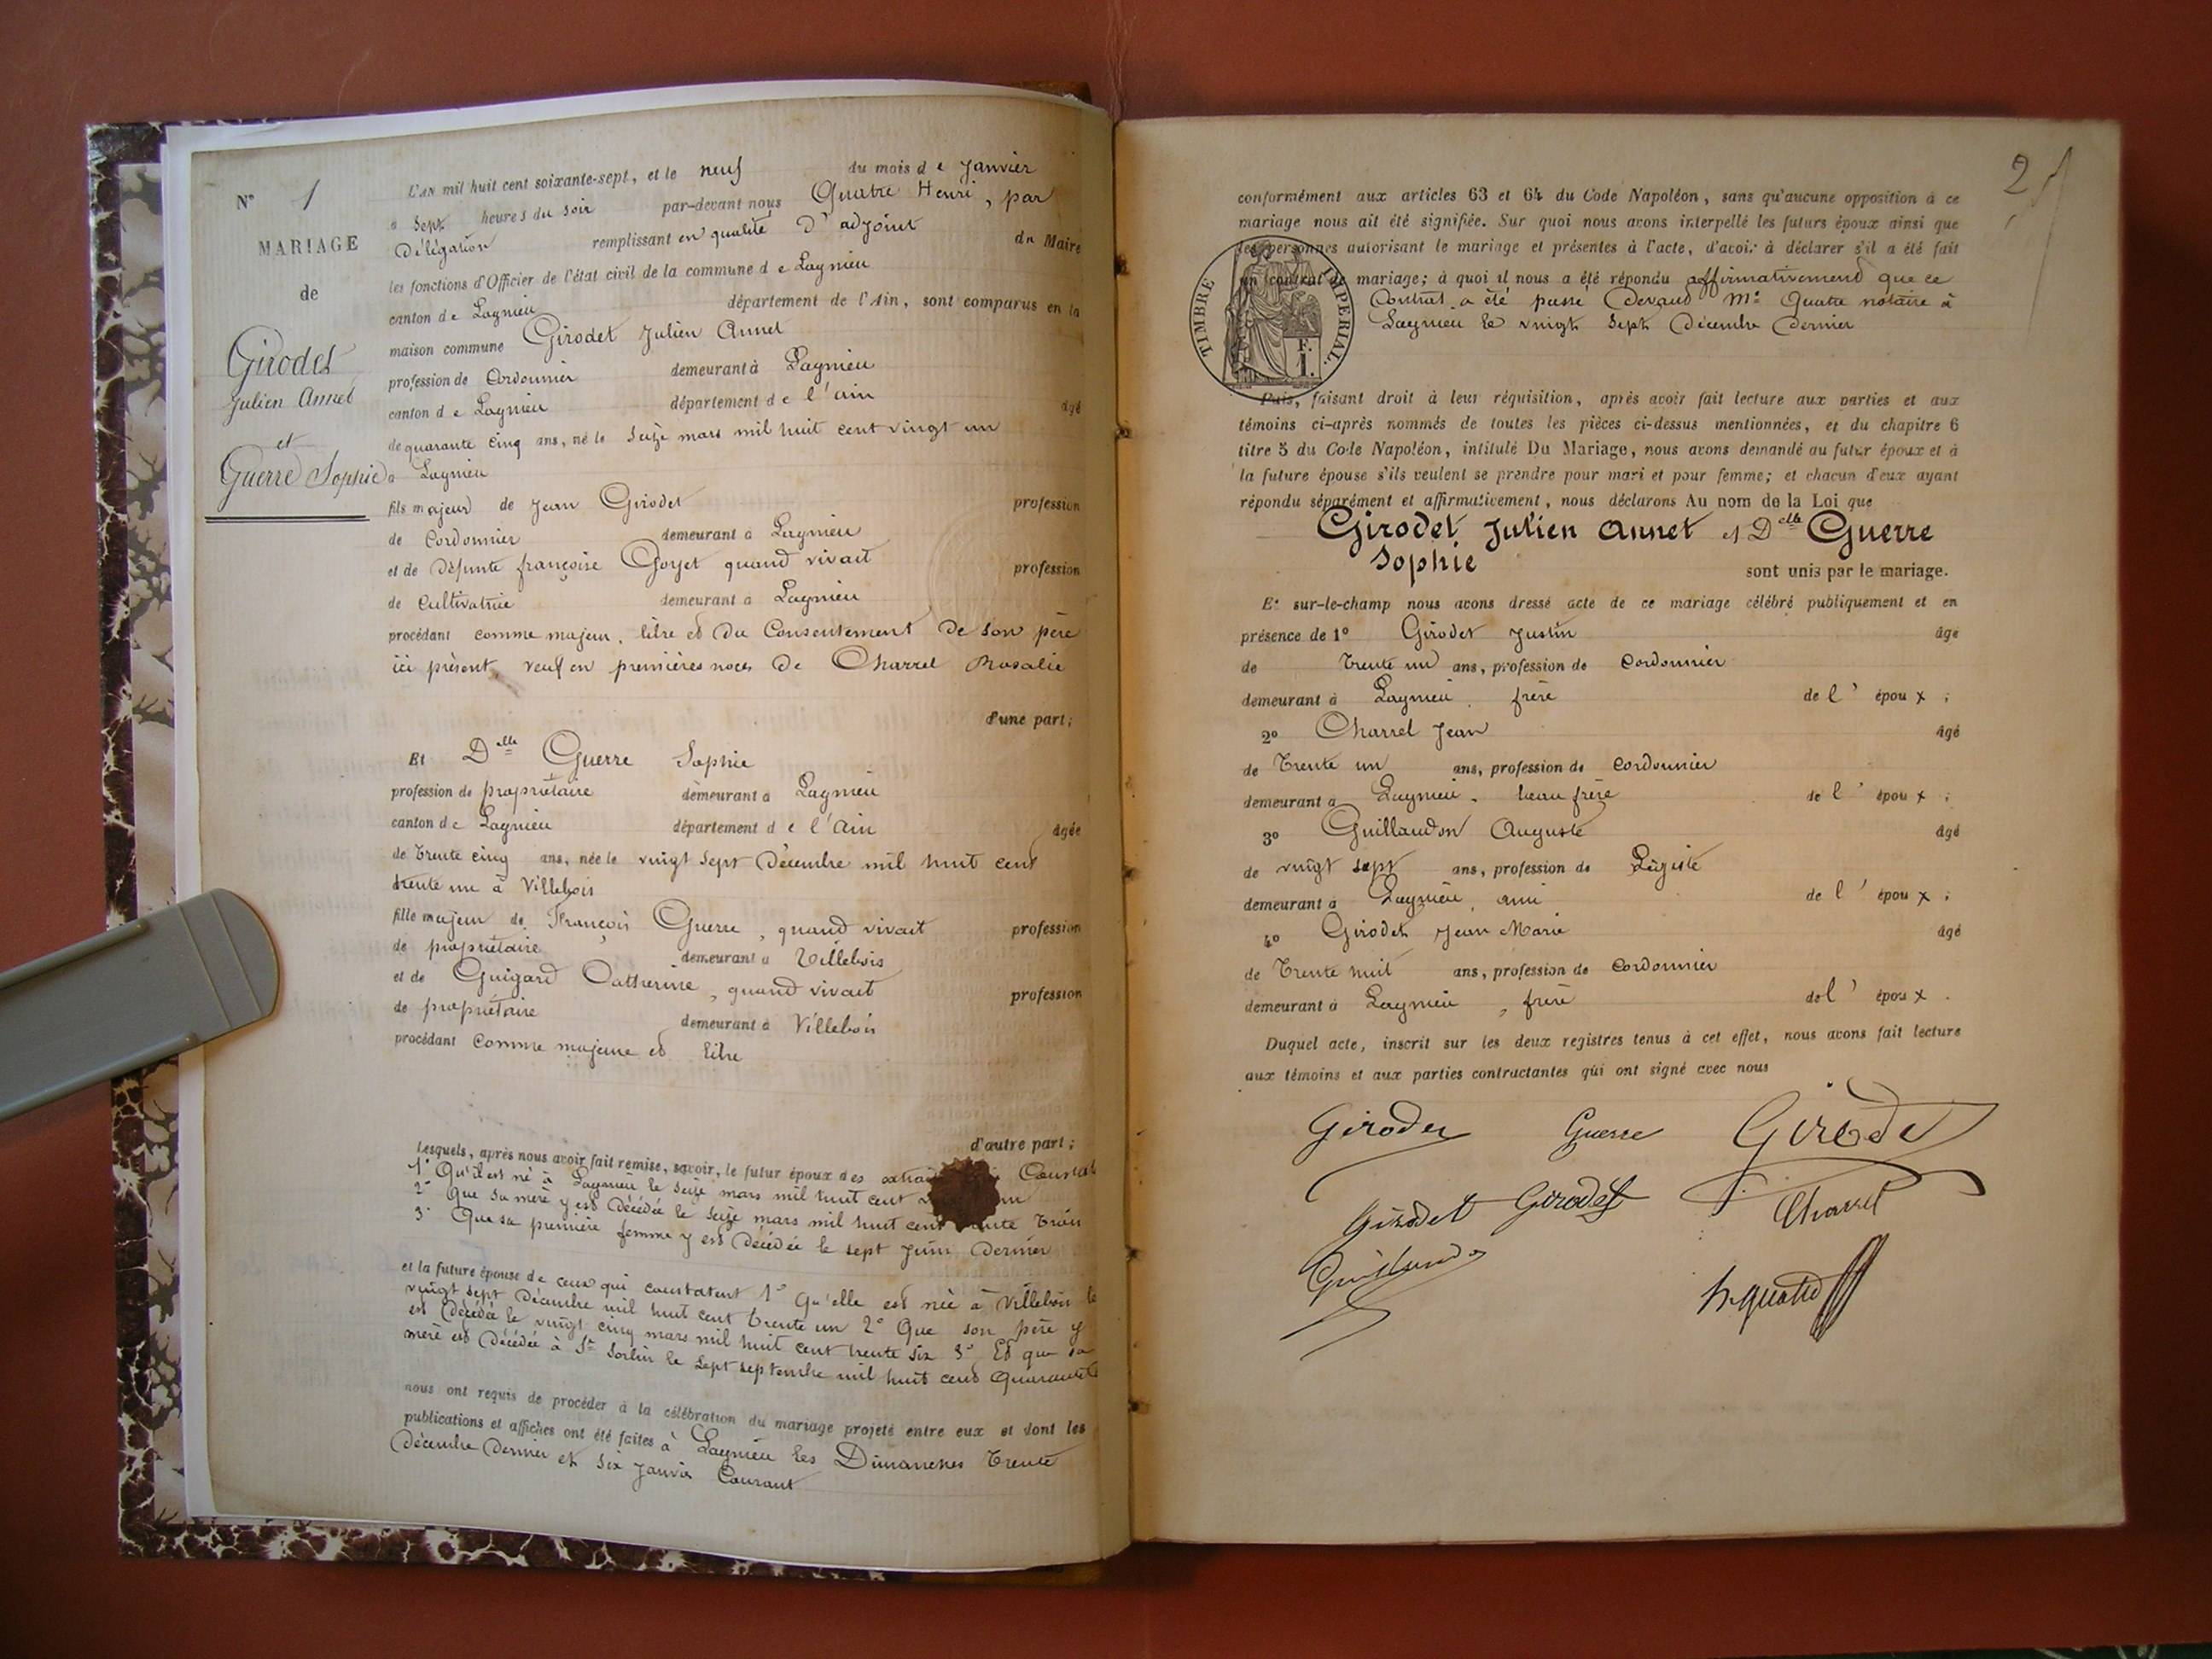 N° 1
MARIAGE
de
Girodet
Julien Annet
et
Guerre Sophie
L'AN mil huit cent soixante-sept, et le neuf du mois de Janvier
à Sept heures du soir par-devant nous Quatre Henri, par
Délégation remplissant en qualité D'adjoint du Maire
les fonctions d'Officier de l'état civil de la commune de Lagnieu
canton de Lagnieu département de l'Ain, sont comparus en la
maison commune Girodet Julien Annet
profession de Cordonnier demeurant à Lagnieu
canton de Lagnieu département de l'ain âgé
de quarante cinq ans, né le Seize mars mil huit cent vingt un
à Lagnieu
fils majeur de Jean Girodet profession
de Cordonnier demeurant à Lagnieu
et de Défunte françoise Goyet quand vivait profession
de Cultivatrice demeurant à Lagnieu
procédant comme majeur, libre et Du Consentement De son père
ici présent, veuf en premières noces De Charrel Rosalie
d'une part;
Et Delle Guerre Sophie
profession de propriétaire demeurant à Lagnieu
canton de Lagnieu département de l'Ain âgée
de Trente cinq ans, née le vingt sept Décembre mil huit cent
trente un à Villebois
fille majeur de François Guerre, quand vivait profession
de propriétaire demeurant à Villebois
et de Guigard Catherine, quand vivait profession
de propriétaire demeurant à Villebois
procédant Comme majeure et libre
d'autre part;
Lesquels, après nous avoir fait remise, savoir, le futur époux des
1° Qu'il est né à Lagnieu le Seize mars mil huit cent
2° Que sa mère y est Décédée le Seize mars mil huit cent Trois
3° Que sa première femme y est Décédée le sept Juin Dernier
et la future épouse de ceux qui constatent 1° Qu'elle est née à Villebois le
vingt sept Décembre mil huit cent Trente un 2° Que son père y
est Décédée le vingt cinq mars mil huit cent trente six 3° Et que sa
mère est Décédée à St Sorlin le Sept septembre mil huit cent
nous ont requis de procéder à la célébration du mariage projeté entre eux et dont les
publications et affiches ont été faites à Lagnieu les Dimanches Trente
Décembre Dernier et Six Janvier Courant
2
conformément aux articles 63 et 64 du Code Napoléon, sans qu'aucune opposition à ce
mariage nous ait été signifiée. Sur quoi nous avons interpellé les futurs époux ainsi que
les personnes autorisant le mariage et présentes à l'acte, d'avoir à déclarer s'il a été fait
un contrat de mariage; à quoi il nous a été répondu affirmativement que ce
Contrat a été passé Devant Me Quatre notaire à
Lagnieu le vingt Sept Décembre Dernier
TIMBRE IMPERIAL.
1 F.
Puis, faisant droit à leur réquisition, après avoir fait lecture aux parties et aux
témoins ci-après nommés de toutes les pièces ci-dessus mentionnées, et du chapitre 6
titre 5 du Code Napoléon, intitulé Du Mariage, nous avons demandé au futur époux et à
la future épouse s'ils veulent se prendre pour mari et pour femme; et chacun d'eux ayant
répondu séparément et affirmativement, nous déclarons Au nom de la Loi que
Girodet Julien Annet et Delle Guerre
Sophie
sont unis par le mariage.
Et sur-le-champ nous avons dressé acte de ce mariage célébré publiquement et en
présence de 1° Girodet Justin âgé
de Trente un ans, profession de Cordonnier
demeurant à Lagnieu, frère de l'époux;
2° Charrel Jean âgé
de Trente un ans, profession de Cordonnier
demeurant à Lagnieu, beau frère de l'époux;
3° Guillaudon Auguste âgé
de vingt sept ans, profession de Légiste
demeurant à Lagnieu, ami de l'époux;
4° Girodet Jean Marie âgé
de Trente huit ans, profession de Cordonnier
demeurant à Lagnieu, frère de l'époux.
Duquel acte, inscrit sur les deux registres tenus à cet effet, nous avons fait lecture
aux témoins et aux parties contractantes qui ont signé avec nous
Girodet Guerre Girodet
Girodet Girodet Charrel
Guillaudon
h. quatre